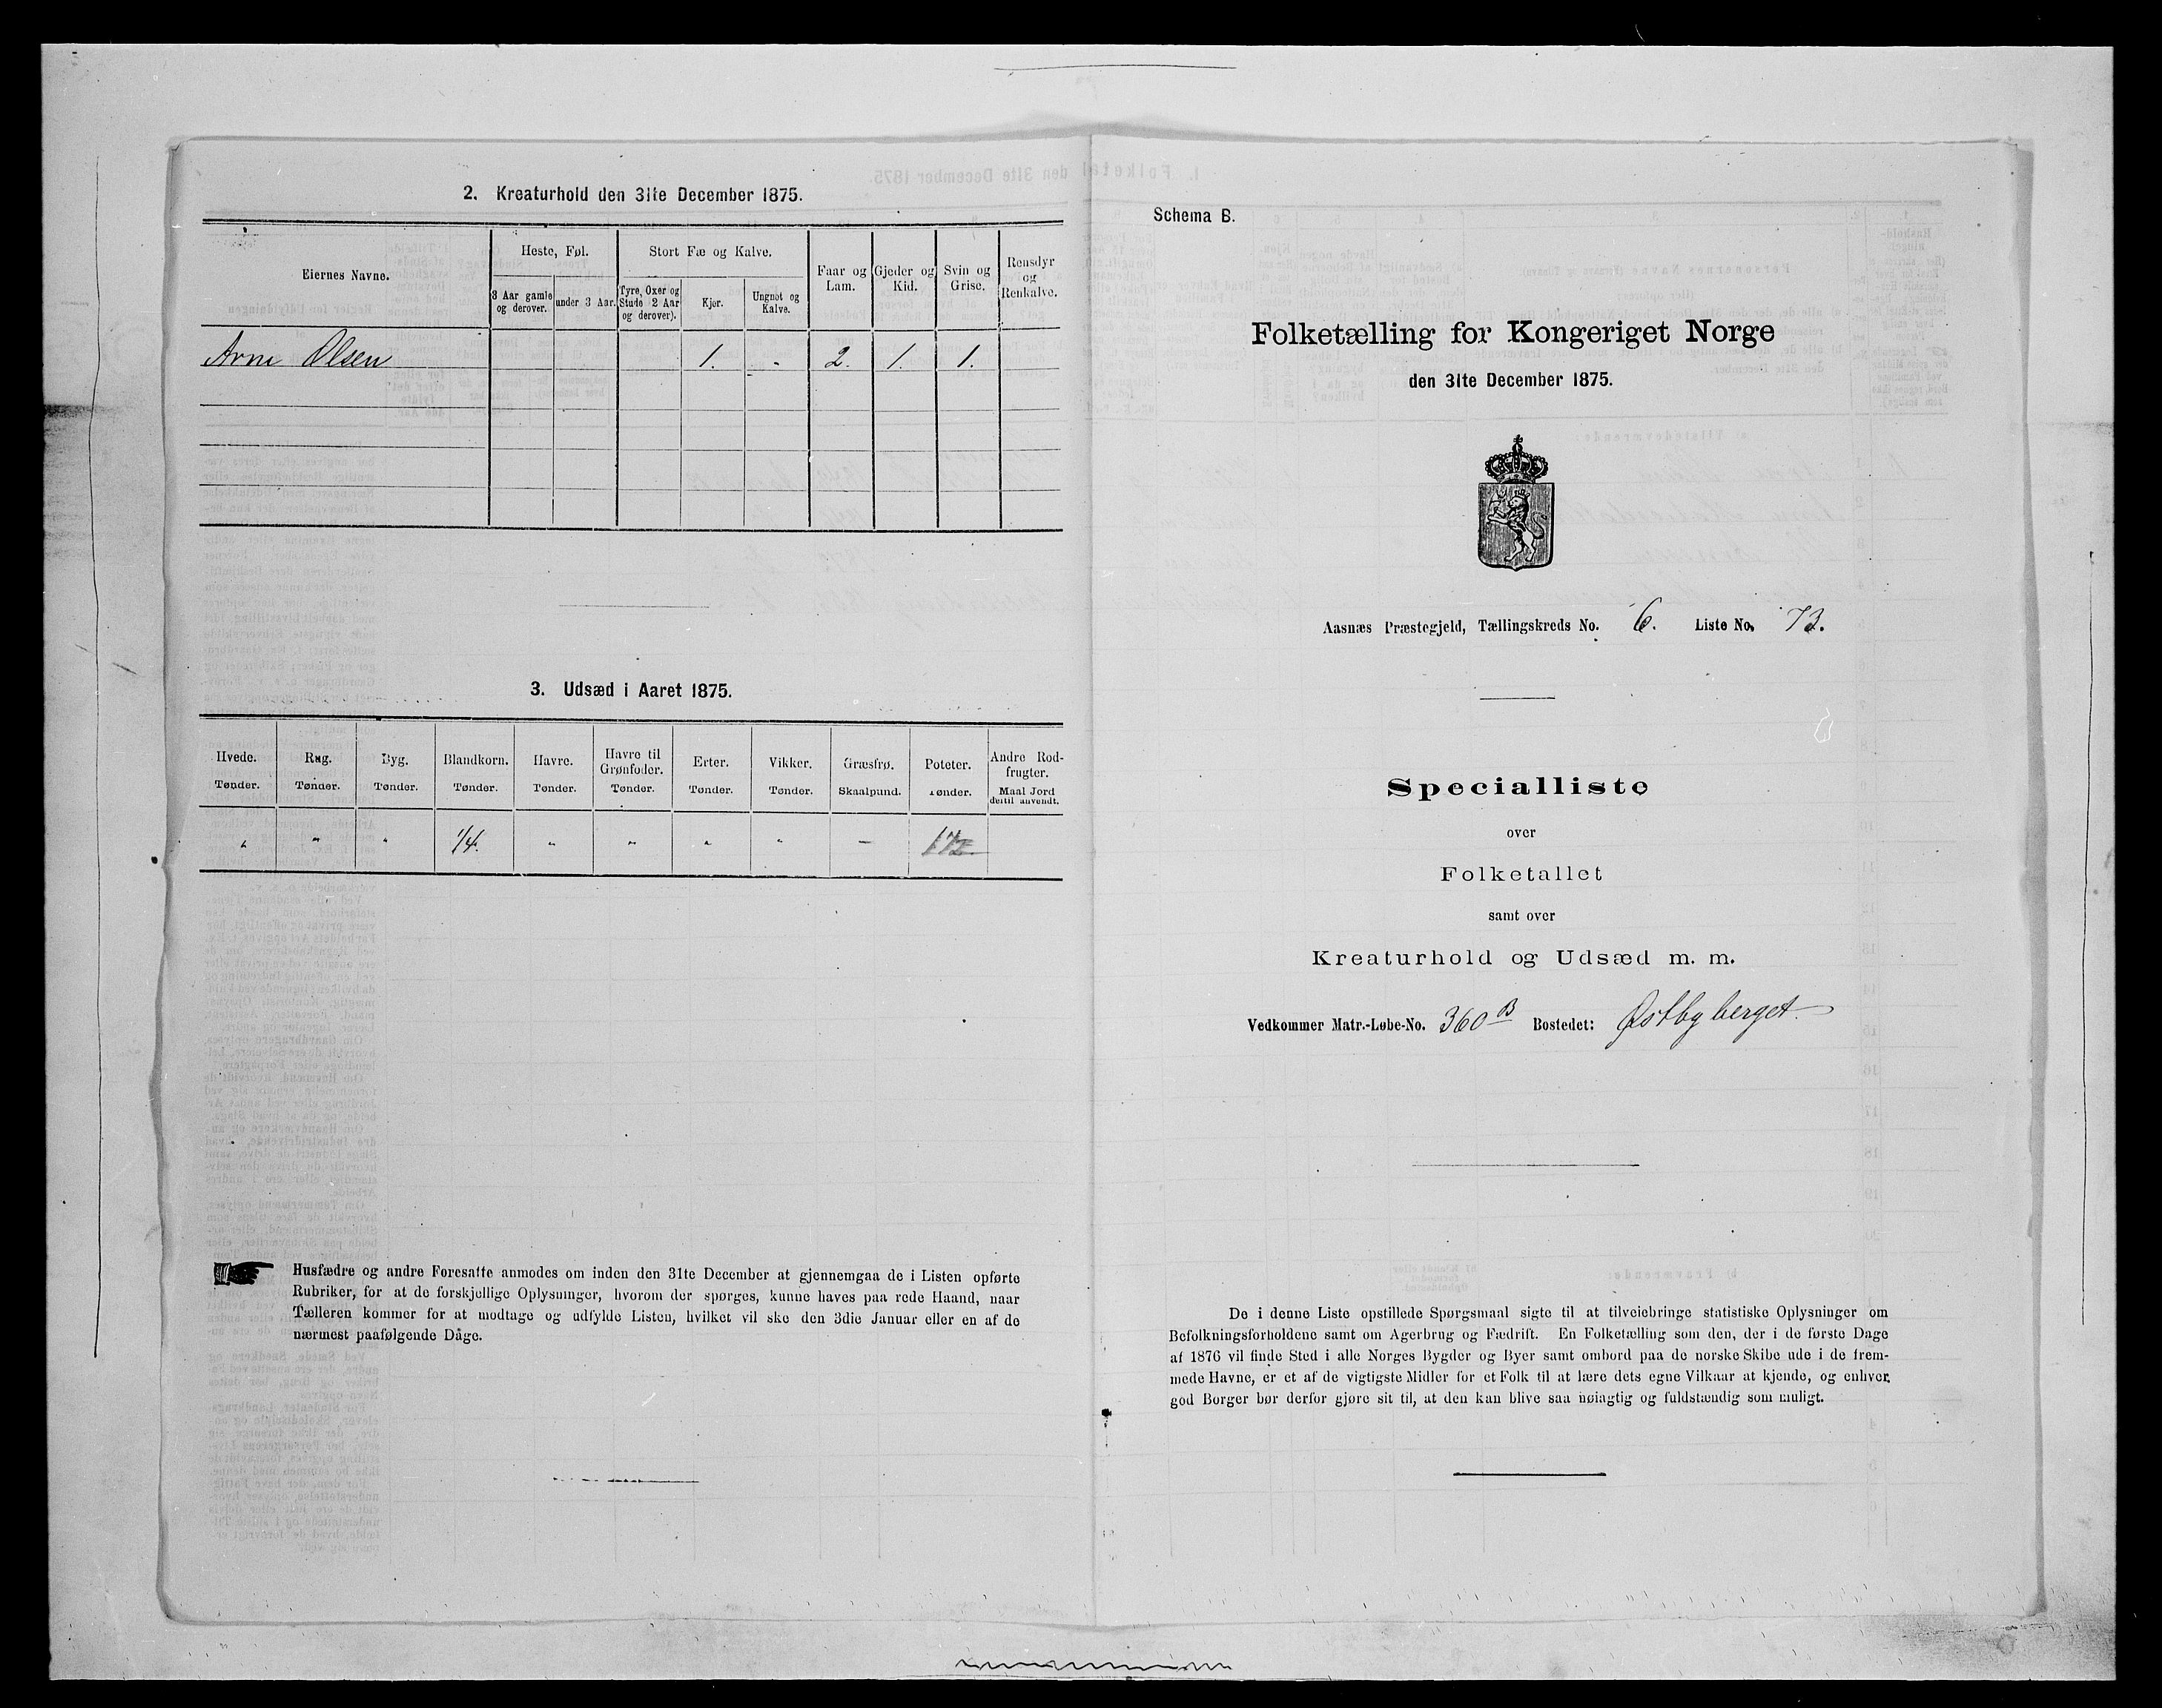 2. Kreaturhold den 31te December 1875.
Eiernes Navne.
Heste, Føl.
3 Aar gamle og derover.
under 3 Aar.
Stort Fæ og Kalve.
Tyre, Oxer og Stude 2 Aar og derover).
Kjør.
Ungnøt og Kalve.
Faar og Lam.
Gjeder og Kid.
Svin og Grise.
Rensdyr og Renkalve.
Arne Olsen 1. - 2. 1. 1.
3. Udsæd i Aaret 1875.
Hvede. Rug. Byg. Blandkorn. Havre. Havre til Grønfoder. Erter. Vikker. Græsfrø. Poteter. Andre Rodfrugter.
Tønder. Tønder. Tønder. Tønder. Tønder. Tønder. Tønder. Tønder. Skaalpund. Tønder. Maal Jord dertil anvendt.
" " " 1/4. " " " " —
Husfædre og andre Foresatte anmodes om inden den 31te December at gjennemgaa de i Listen opførte
Rubriker, for at de forskjellige Oplysninger, hvorom der spørges, kunne haves paa rede Haand, naar
Tælleren kommer for at modtage og udfylde Listen, hvilket vil ske den 3die Januar eller en af de
nærmest paafølgende Dage.
Schema B.
Folketælling for Kongeriget Norge
den 31te December 1875.
Aasnæs Præstegjeld, Tællingskreds No. 6. Liste No. 73.
Specialliste
over
Folketallet
samt over
Kreaturhold og Udsæd m. m.
Vedkommer Matr.-Løbe-No. 360 B Bostedet: Østbyberget.
De i denne Liste opstillede Spørgsmaal sigte til at tilveiebringe statistiske Oplysninger om
Befolkningsforholdene samt om Agerbrug og Fædrift. En Folketælling som den, der i de første Dage
af 1876 vil finde Sted i alle Norges Bygder og Byer samt ombord paa de norske Skibe ude i de frem-
mede Havne, er et af de vigtigste Midler for et Folk til at lære dets egne Vilkaar at kjende, og enhver
god Borger bør derfor gjøre sit til, at den kan blive saa nøiagtig og fuldstændig som muligt.